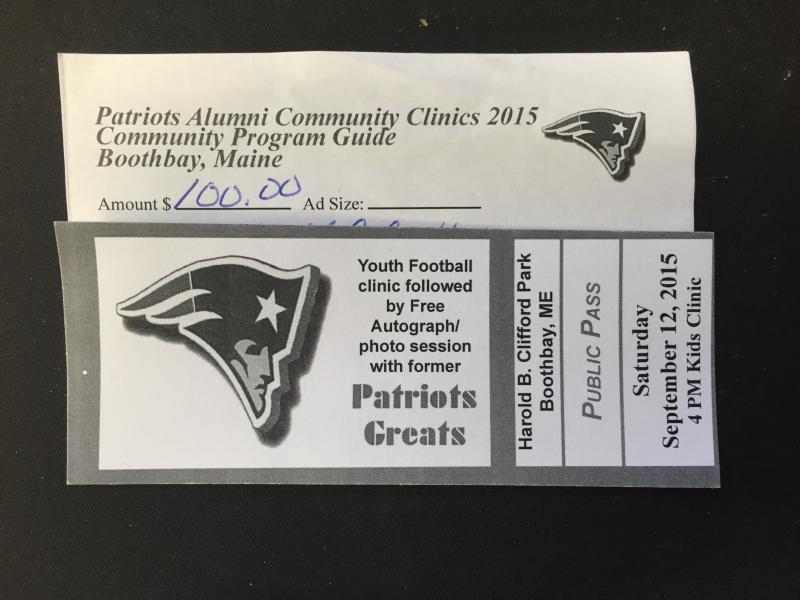 Patriots Alumni Community Clinics 2015
Community Program Guide
Boothbay, Maine
Amount $ 100.00 Ad Size:
Youth Football
clinic followed
by Free
Autograph/
photo session
with former
Patriots
Greats
Harold B. Clifford Park
Boothbay, ME
PUBLIC PASS
Saturday
September 12, 2015
4 PM Kids Clinic